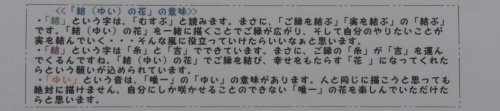 <<「結（ゆい）の花」の意味>>
・「結」という字は、「むすぶ」と読みます。まさに、「ご縁を結ぶ」「実を結ぶ」の「結ぶ」
です。「結（ゆい）の花」を一緒に描くことでご縁が広がり、そして自分のやりたいことが
実を結んでいく・・・そんな風に役立っていけたらいいなぁと思います。
・「結」という字は「糸」と「吉」でできています。まさに、ご縁の「糸」が「吉」を運ん
でくるんですね。「結（ゆい）の花」でご縁を結び、幸せをもたらす「花 」になってくれた
らという願いが込められています。
・「ゆい」という音は、「唯一」の「ゆい」の意味があります。人と同じに描こうと思っても
絶対に描けません。自分にしか咲かせることのできない「唯一」の花を楽しんでいただけた
らと思います。